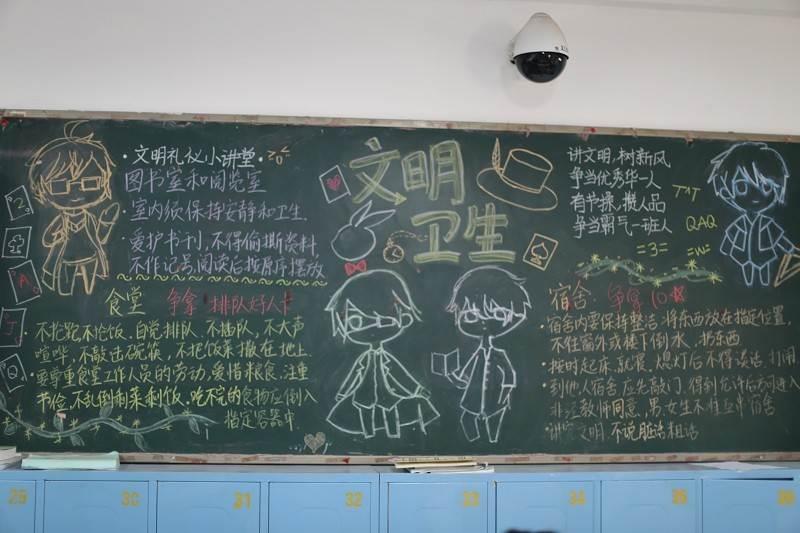 文明礼仪小讲堂
图书室和阅览室
室内须保持安静和卫生.
爱护书刊,不得偷撕资料,
不作记号,阅读后按原序摆放
2
A
J
Q
食堂 争拿"排队好人卡"
不抢跑,不抢饭.自觉排队,不插队,不大声
喧哗,不敲击碗筷,不把饭菜撒在地上.
要尊重食堂工作人员的劳动,爱惜粮食.注重
节俭,不乱倒剩菜剩饭,吃不完的食物应倒入
指定容器中.
文明
卫生
讲文明,树新风,
争当优秀华一人
有节操,攒人品
争当霸气一班人
TAT
QAQ
=3=
=w=
宿舍: 争拿10★
宿舍内要保持整洁.将东西放在指定位置,
不往窗外或楼下倒水、扔东西
按时起床、就寝,熄灯后不得谈话、打闹
到他人宿舍应先敲门,得到允许后方可进入
非经教师同意,男女生不准互串宿舍
讲究文明,不说脏话粗话
29
30
31
32
33
34
35
36